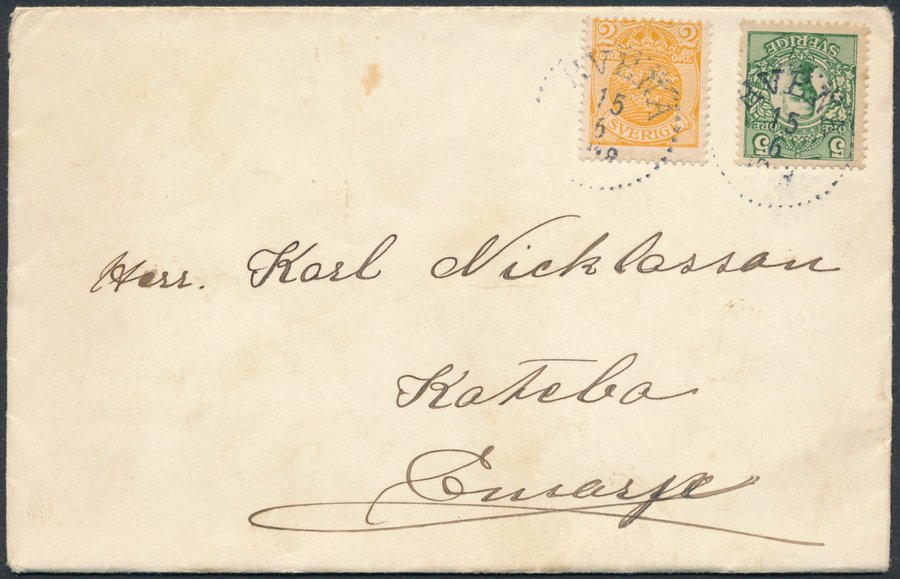 2 2
ÖRE
SVERIGE
15
6
SVERIGE
5 5
15
6
Herr. Karl Nicklasson
Katebo